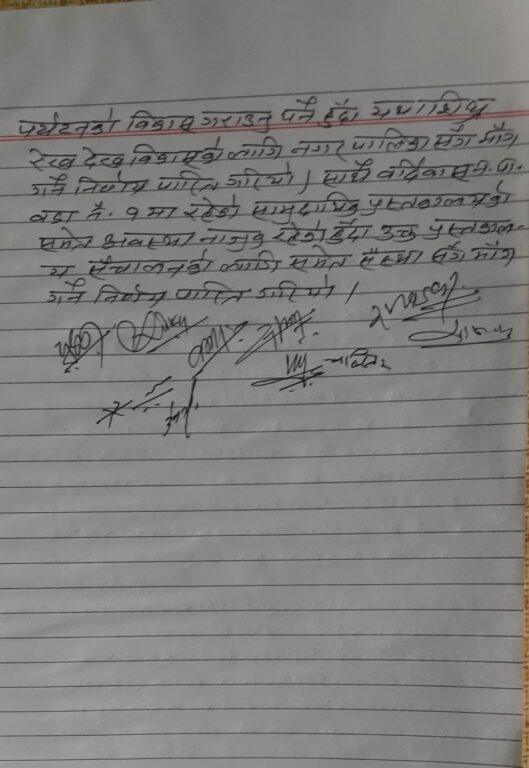 पर्यटनको विकास गराउनु पर्ने हुँदा यथाशिघ्र
रेख देख विकासको लागि नगरपालिका सँग माँग
गर्ने निर्णय पारित गरियो । साथै बर्दिबास न.पा.
वडा नं. १ मा रहेको सामुदायिक पुस्तकालयको
समेत अवस्था नाजुक रहेको हुँदा उक्त पुस्तकाल-
य सँचालनको लागि समेत सँस्था सँग माँग
गर्ने निर्णय पारित गरियो ।